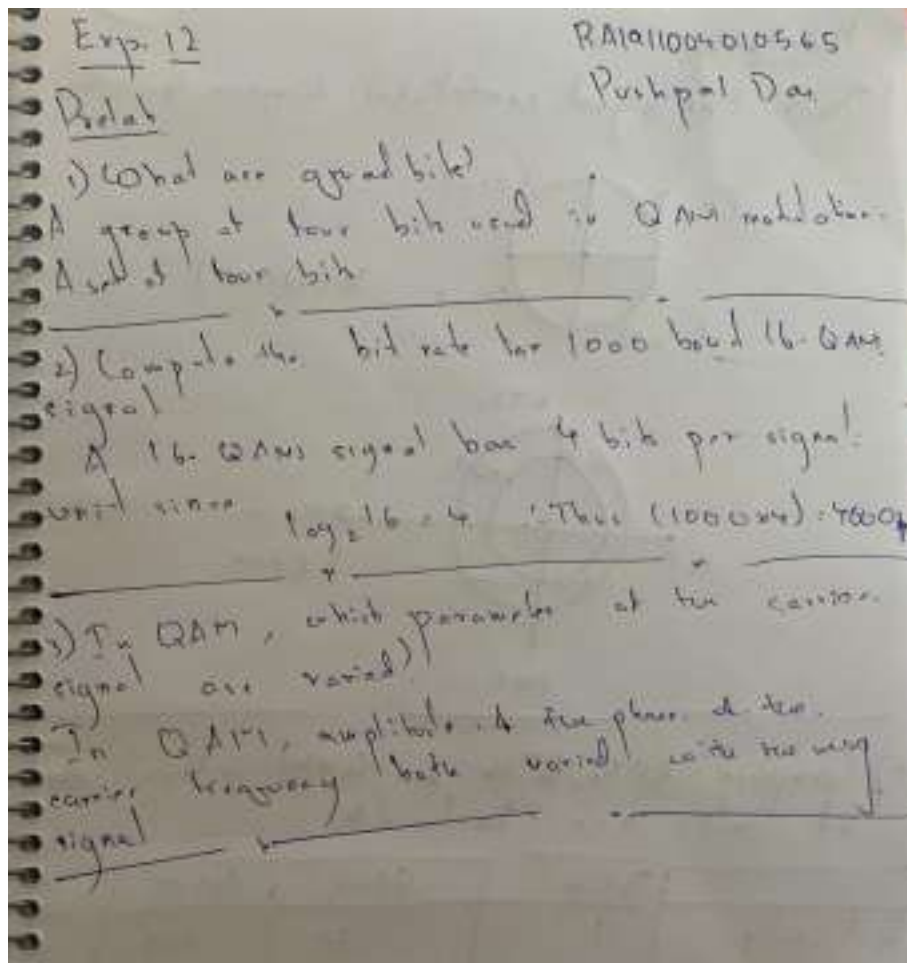 Exp. 12
RA1911004010565
Pushpal Das
Prelab
1) What are quad bits?
A group of four bits used in QAM modulation.
A set of four bits.
2) Compute the bit rate for 1000 baud 16-QAM
signal
A 16-QAM signal has 4 bits per signal
unit since log₂16 = 4 Thus (1000x4) = 4000
3) In QAM, which parameter of the carrier
signal are varied?
In QAM, amplitude & the phase of the
carrier frequency both varied with the msg
signal